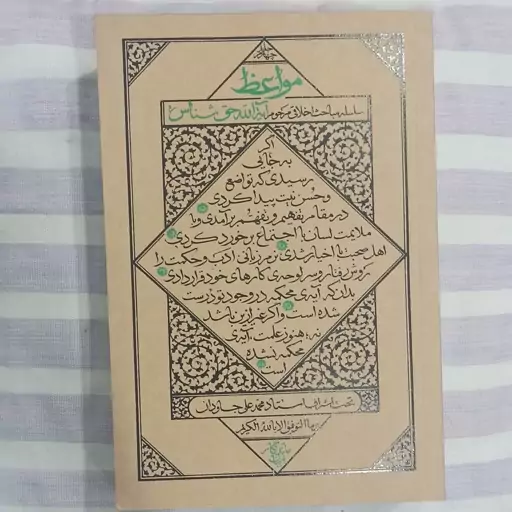 جلد اول
مواعظ
سلسله مباحث اخلاقی مرحوم آیة الله حق شناس
اگر
به جایی
رسیدی که تواضع
و حُسن نیت پیدا کردی
در مقام تفهیم و تفهم برآمدی و با
ملایمت لسان با اجتماع برخورد کردی
اهل صحبت با اخیار شدی نیز مرزبانی ادب و حکمت را
روش رفتار و سرلوحه‌ی کارهای خود قرار دادی
بدان که آیه‌ی محکمه در وجود تو درست
شده است و اگر غیر از این باشد
نه، هنوز علمت، آیه‌ی
محکمه نشده
است
تحت اشراف استاد محمدعلی جاودان
و ما التوفیق الا بالله الکریم